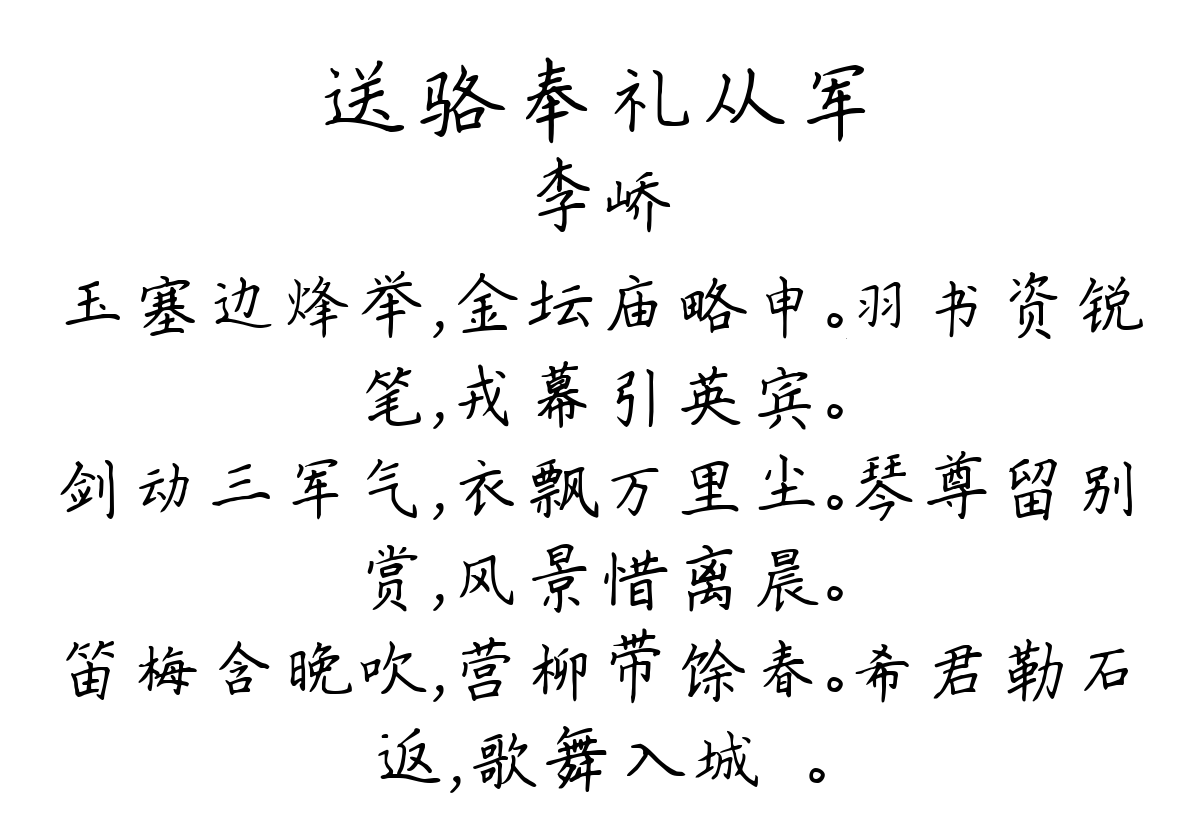 送骆奉礼从军
李峤
玉塞边烽举,金坛庙略申。羽书资锐
笔,戎幕引英宾。
剑动三军气,衣飘万里尘。琴尊留别
赏,风景惜离晨。
笛梅含晚吹,营柳带馀春。希君勒石
返,歌舞入城 。